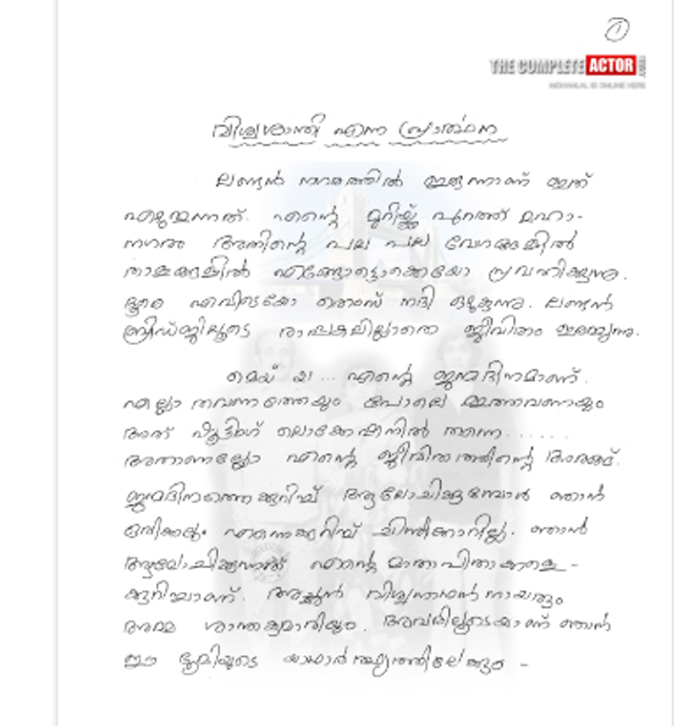 1
THE COMPLETE ACTOR
MOHANLAL IS ONLINE HERE
വിശ്വശാന്തി എന്ന പ്രാർത്ഥന
ലണ്ടൻ നഗരത്തിൽ ഇരുന്നാണ് ഇത്
എഴുതുന്നത്. എന്റെ മുറിയ്ക്ക് പുറത്ത് മഹാ-
നഗരം അതിന്റെ പല പല വേഗങ്ങളിൽ
താളങ്ങളിൽ എങ്ങോട്ടൊക്കെയോ പ്രവഹിക്കുന്നു.
ദൂരെ എവിടെയോ തെംസ് നദി ഒഴുകുന്നു. ലണ്ടൻ
ബ്രിഡ്ജിലൂടെ രാപകലില്ലാതെ ജീവിതം ഇരമ്പുന്നു.
മെയ് 21... എന്റെ ജന്മദിനമാണ്.
എല്ലാ തവണത്തേയും പോലെ ഇത്തവണയും
അത് ഷൂട്ടിംഗ് ലൊക്കേഷനിൽ തന്നെ......
അതാണല്ലോ എന്റെ ജീവിതത്തിന്റെ അരങ്ങ്.
ജന്മദിനത്തെക്കുറിച്ച് ആലോചിക്കുമ്പോൾ ഞാൻ
ഒരിക്കലും എന്നെക്കുറിച്ച് ചിന്തിക്കാറില്ല. ഞാൻ
ആലോചിക്കുന്നത് എന്റെ മാതാപിതാക്കളെ-
ക്കുറിച്ചാണ്. അച്ഛൻ വിശ്വനാഥൻ നായരും
അമ്മ ശാന്തകുമാരിയും. അവരിലൂടെയാണ് ഞാൻ
ഈ ഭൂമിയുടെ യാഥാർത്ഥ്യത്തിലേക്കും -